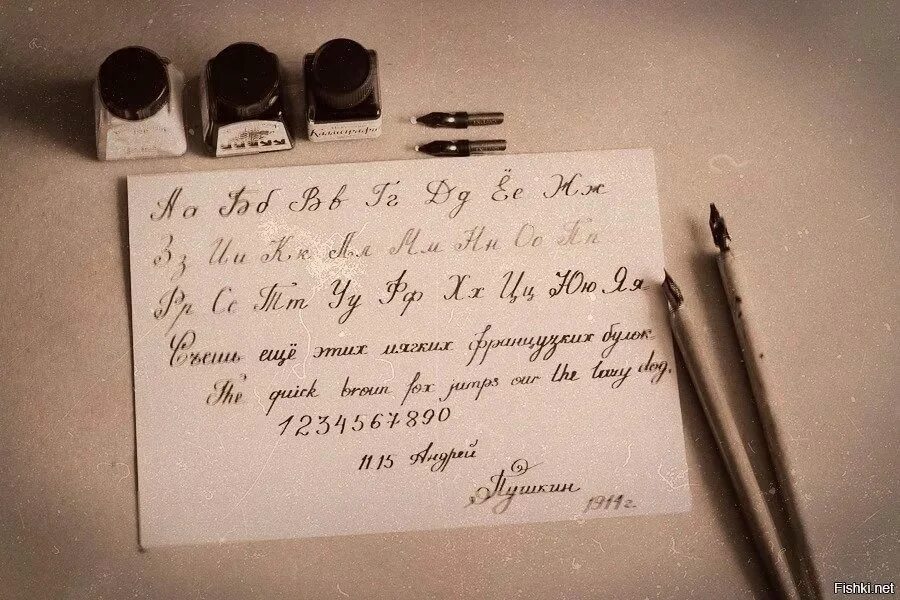 Каллиграфъ
Аа Бб Вв Гг Дд Ёё Жж
Зз Ии Кк Лл Мм Нн Оо Пп
Рр Сс Тт Уу Фф Хх Цц Юю Яя
Съешь ещё этих мягких французких булок
The quick broun fox jumps our the lazy dog.
1234567890
11.15 Андрей
Пушкин
1911г.
Fishki.net